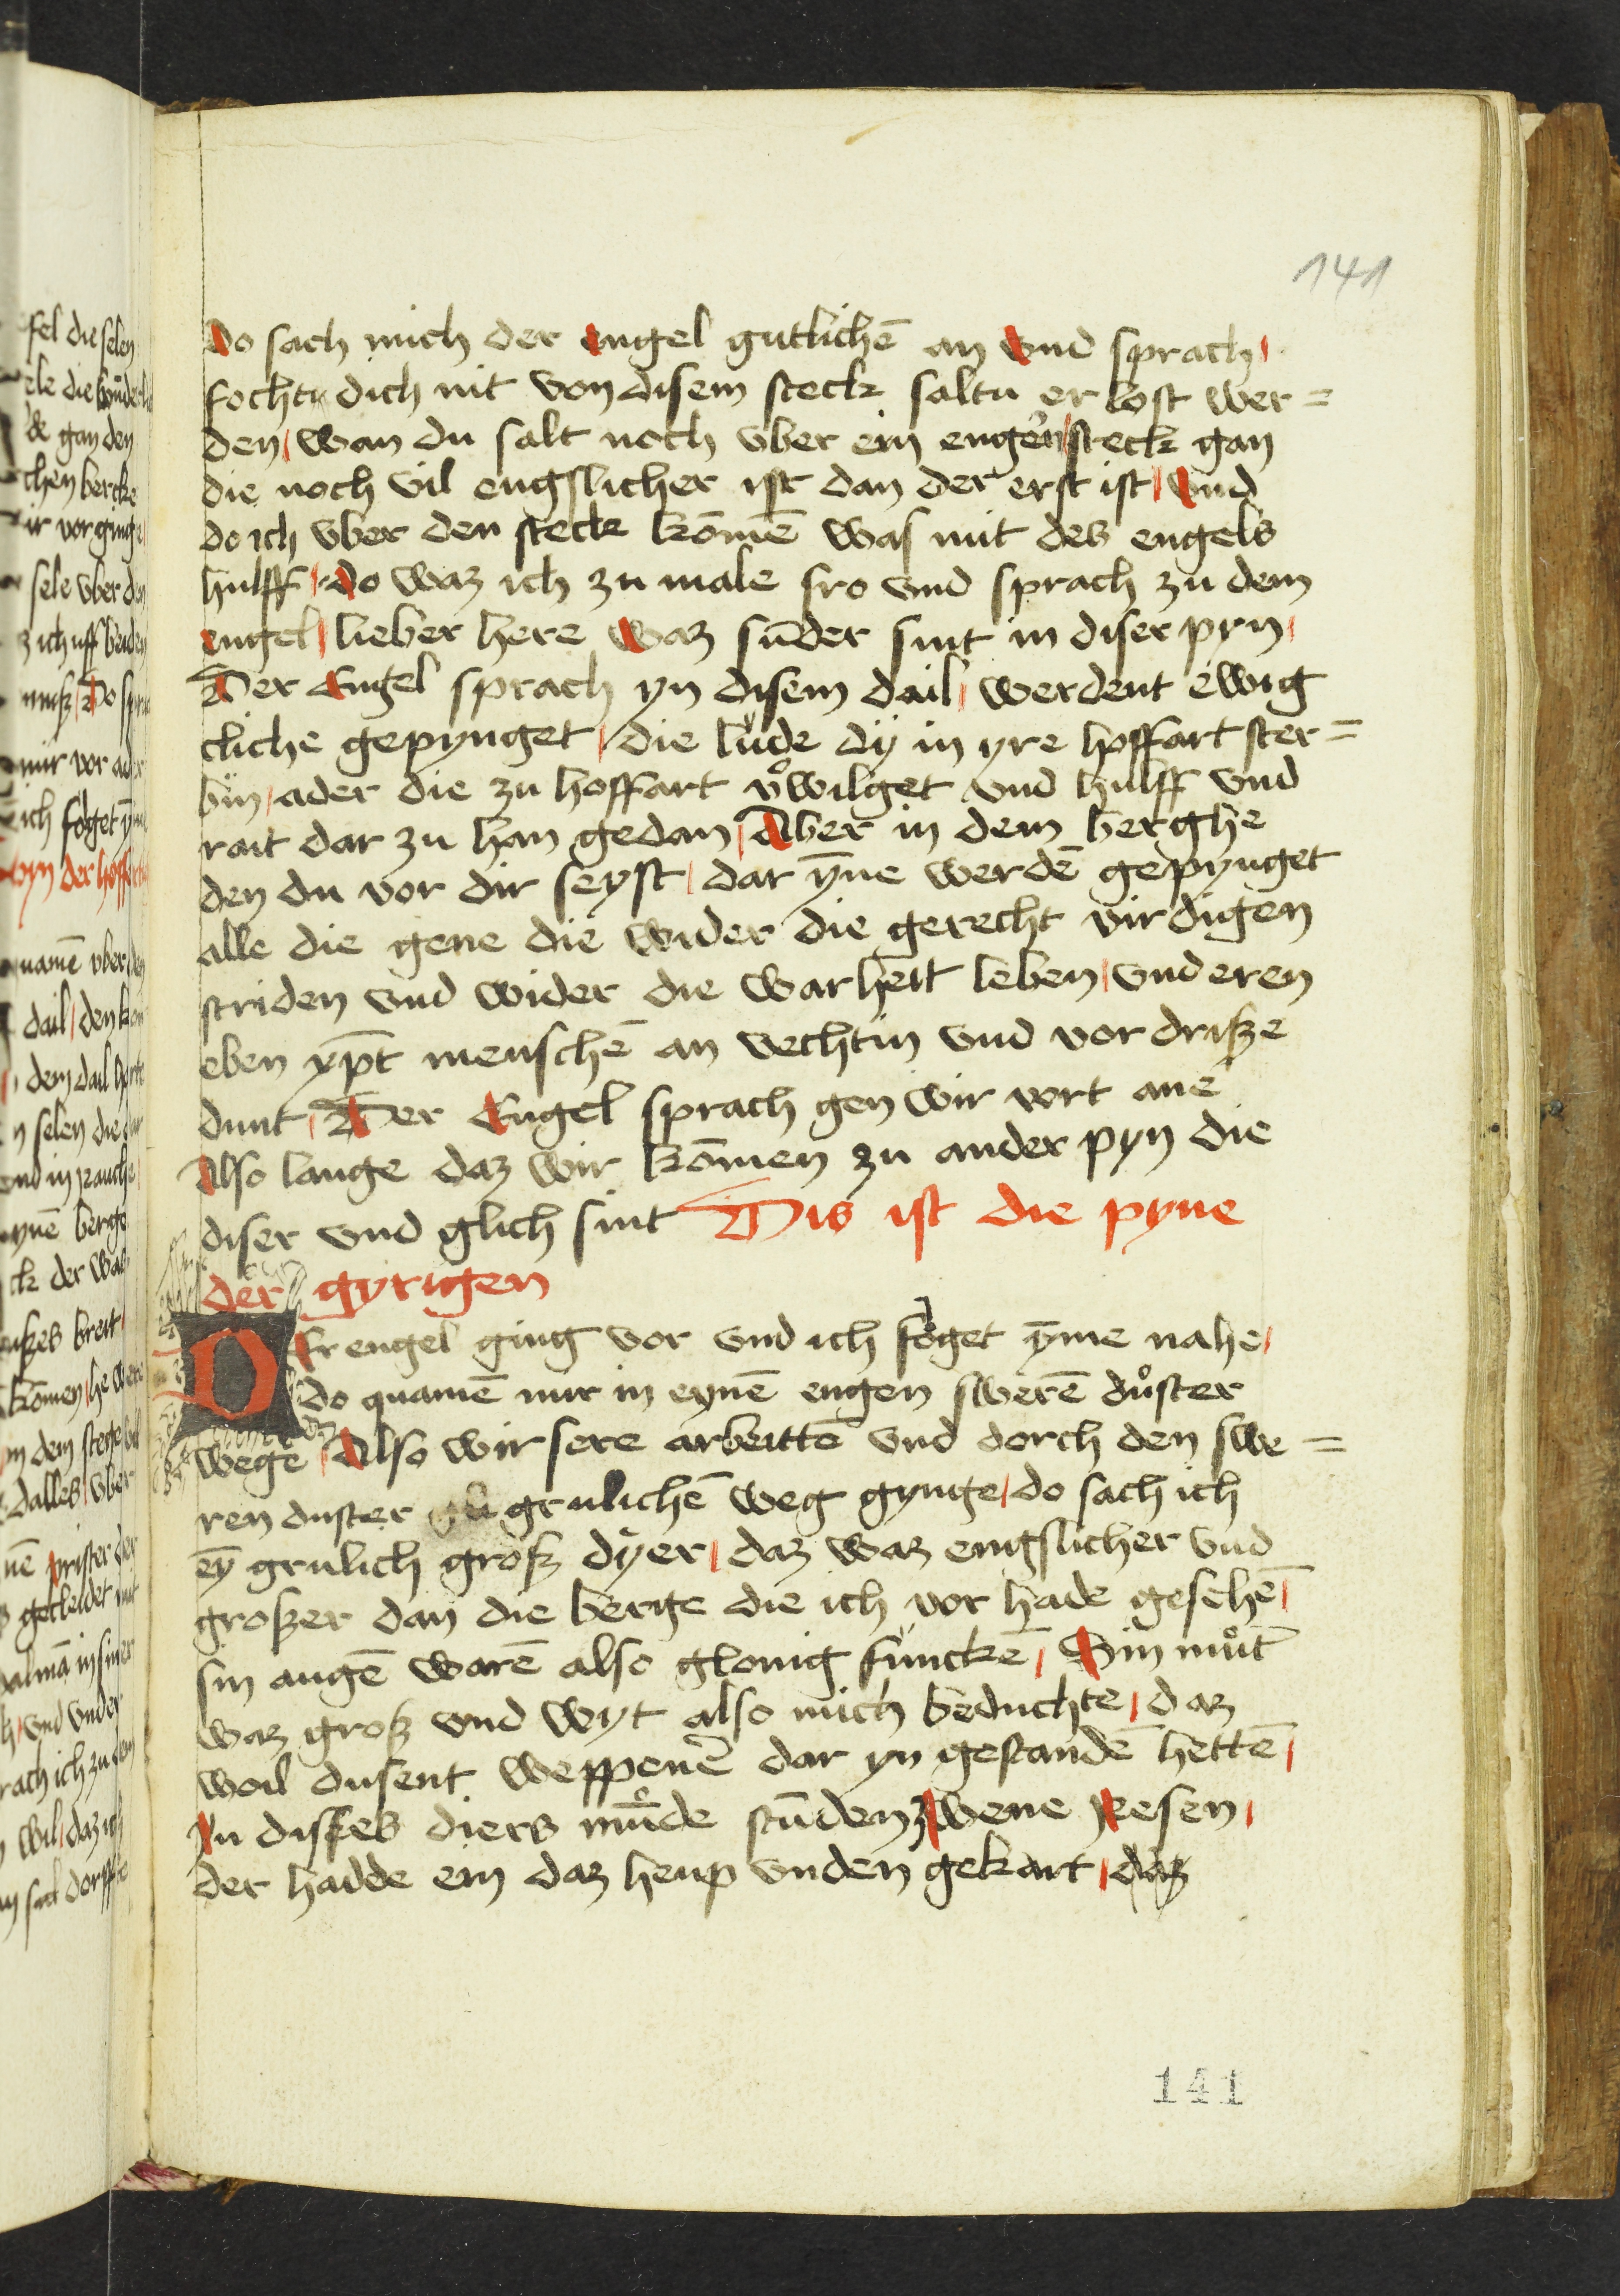 141
do sach mich der engel gutlichē an vnd sprach /
fochte dich nit von disem steck saltu er lost wer=
den / wan du salt noch vber ein engern steck gan
die noch vil engslicher ist dan der erst ist / vnd
do ich vber den steck kōmē was mit des engels
hulff / do waz ich zu male fro vnd sprach zu dem
engel / lieber here waz sūder sint in diser pyn /
Der Engel sprach yn disem dail / werdent ewig
cliche gepynget / die lude dÿ in yre hoffart ster=
bin / ader die zu hoffart v̊wilget vnd hulff vnd
rait dar zu han gedan / Aber in dem berghe
den du vor dir seyst / dar ȳne werdē gepynget
alle die gene die wider die gerecht virdigen
striden vnd wider die warheit leben / vnd eren
eben xp̄t menschē an vechtin vnd vor drisze
dunt / Der Engel sprach gen wir vort ane
Also lange daz wir kōmen zu ander pyn die
diser vnd glich sint Dis ist die pyne
der gyrigen
DEr engel ging vor vnd ich folget ȳme nahe /
do quamē mir in eynē engen swerē důster
wege / Also wir sere arbeittē vnd dorch den swe=
ren duster grulichē weg gynge / do sach ich
eȳ grulich grosz dÿer / daz waz engslicher vnd
groszer dan die berge die ich vor hade gesehē /
sin augē warē also glonig funckē / Sin můt
waz grosz vnd wyt also mich beduchte / daz
woil dusent weppenē dar yn gestandē hettē /
In disses diers mūde stūden zwene Resen /
der hadde ein daz heup vnden gekart / daz
141